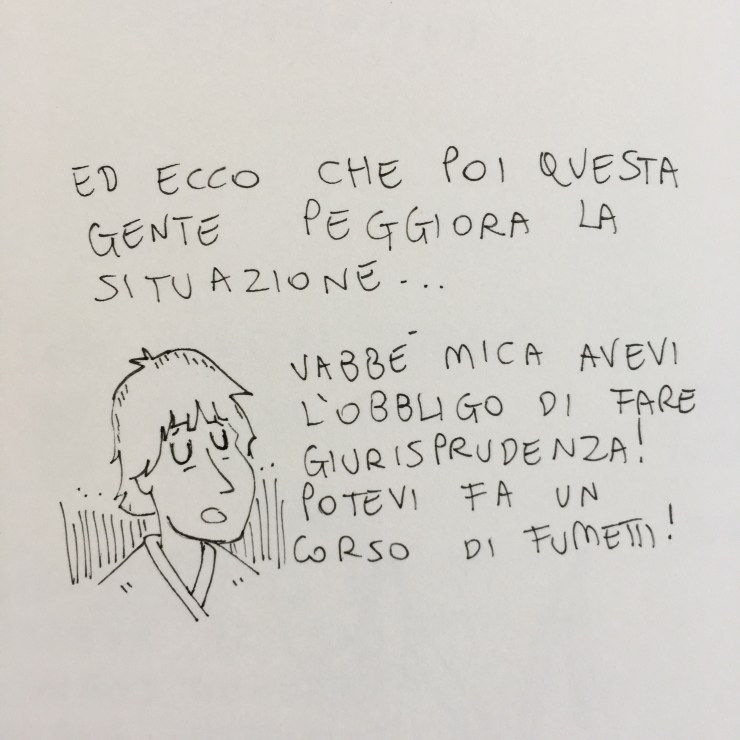 ED ECCO CHE POI QUESTA
GENTE PEGGIORA LA
SITUAZIONE...
VABBÈ MICA AVEVI
L'OBBLIGO DI FARE
GIURISPRUDENZA!
POTEVI FA UN
CORSO DI FUMETTI!